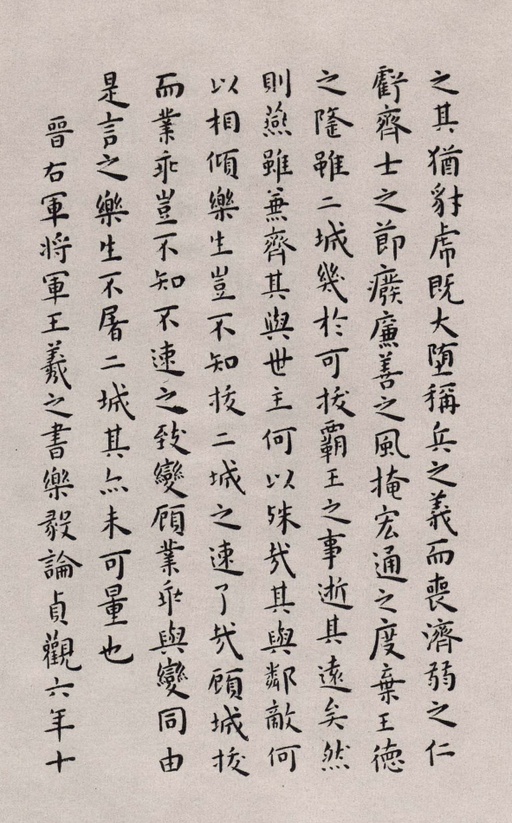 之其猶豺虎既大墮稱兵之義而喪濟弱之仁
虧齊士之節癈廉善之風掩宏通之度棄王德
之隆雖二城幾於可拔霸王之事逝其遠矣然
則燕雖兼齊其與世主何以殊哉其與鄰敵何
以相傾樂生豈不知拔二城之速了哉顧城拔
而業乖豈不知不速之致變顧業乖與變同由
是言之樂生不屠二城其亦未可量也
晉右軍將軍王羲之書樂毅論貞觀六年十